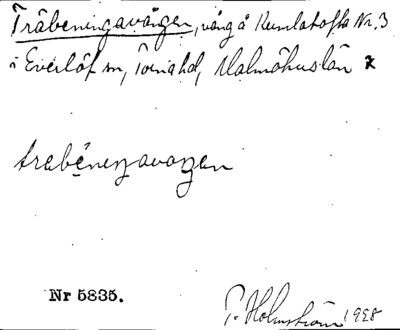 Träbeningavången, vång å Rumlatofta Nr. 3
i Everlöf sn, Torna hd, Malmöhus län
trabeneŋavaŋen
Nr 5835.
P. Holmström 1928